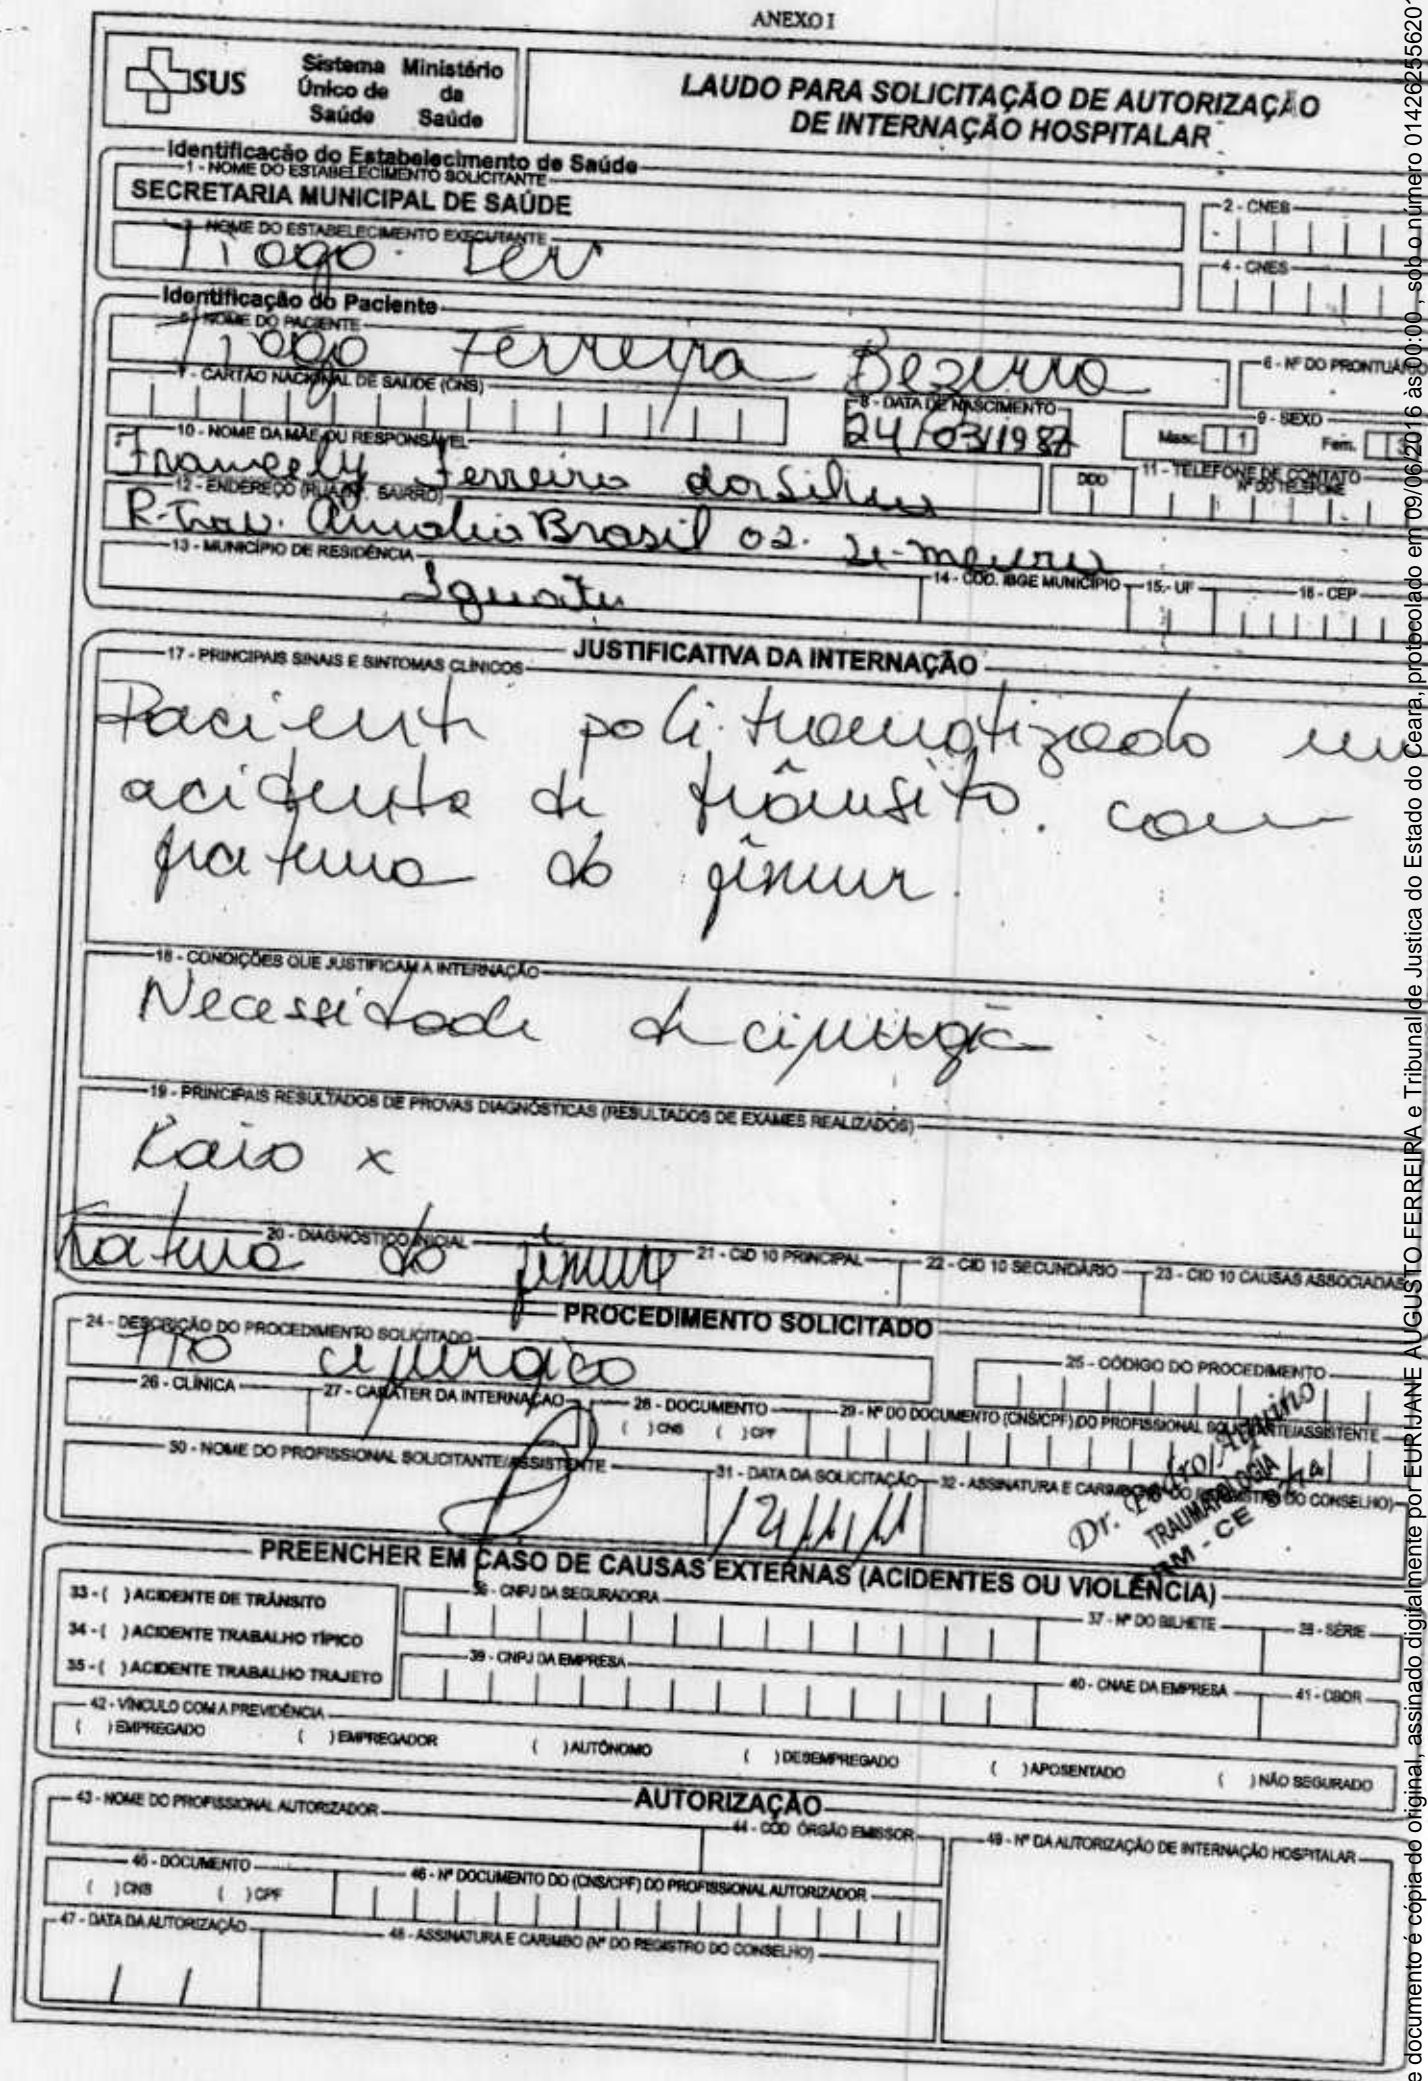 ANEXO I
SUS
Sistema Único de Saúde
Ministério da Saúde
LAUDO PARA SOLICITAÇÃO DE AUTORIZAÇÃO
DE INTERNAÇÃO HOSPITALAR
Identificação do Estabelecimento de Saúde
1 - NOME DO ESTABELECIMENTO SOLICITANTE
SECRETARIA MUNICIPAL DE SAÚDE
2 - CNES
3 - NOME DO ESTABELECIMENTO EXECUTANTE
Tiago Fer
4 - CNES
Identificação do Paciente
5 - NOME DO PACIENTE
Tiago Ferreira Bezerra
6 - Nº DO PRONTUÁRIO
7 - CARTÃO NACIONAL DE SAÚDE (CNS)
8 - DATA DE NASCIMENTO
24/03/1987
9 - SEXO
Masc. 1
Fem. 3
10 - NOME DA MÃE OU RESPONSÁVEL
Ferreira da Silva
11 - TELEFONE DE CONTATO
DDD
Nº DO TELEFONE
12 - ENDEREÇO (RUA, Nº, BAIRRO)
R-Trav. Amalia Brasil 02.
13 - MUNICÍPIO DE RESIDÊNCIA
Iguatu
14 - CÓD. IBGE MUNICÍPIO
15 - UF
16 - CEP
JUSTIFICATIVA DA INTERNAÇÃO
17 - PRINCIPAIS SINAIS E SINTOMAS CLÍNICOS
Paciente politraumatizado em
acidente de trânsito. com
fratura do fêmur.
18 - CONDIÇÕES QUE JUSTIFICAM A INTERNAÇÃO
Necessidade de cirurgia
19 - PRINCIPAIS RESULTADOS DE PROVAS DIAGNÓSTICAS (RESULTADOS DE EXAMES REALIZADOS)
Raio x
20 - DIAGNÓSTICO INICIAL
Fratura do fêmur
21 - CID 10 PRINCIPAL
22 - CID 10 SECUNDÁRIO
23 - CID 10 CAUSAS ASSOCIADAS
PROCEDIMENTO SOLICITADO
24 - DESCRIÇÃO DO PROCEDIMENTO SOLICITADO
TTO cirúrgico
25 - CÓDIGO DO PROCEDIMENTO
26 - CLÍNICA
27 - CARÁTER DA INTERNAÇÃO
28 - DOCUMENTO
( ) CNS ( ) CPF
29 - Nº DO DOCUMENTO (CNS/CPF) DO PROFISSIONAL SOLICITANTE/ASSISTENTE
30 - NOME DO PROFISSIONAL SOLICITANTE/ASSISTENTE
31 - DATA DA SOLICITAÇÃO
12/11/11
32 - ASSINATURA E CARIMBO (Nº DO REGISTRO DO CONSELHO)
Dr. Pedro Aquino
TRAUMATOLOGIA
CRM - CE
PREENCHER EM CASO DE CAUSAS EXTERNAS (ACIDENTES OU VIOLÊNCIA)
33 - ( ) ACIDENTE DE TRÂNSITO
34 - ( ) ACIDENTE TRABALHO TÍPICO
35 - ( ) ACIDENTE TRABALHO TRAJETO
36 - CNPJ DA SEGURADORA
37 - Nº DO BILHETE
38 - SÉRIE
39 - CNPJ DA EMPRESA
40 - CNAE DA EMPRESA
41 - CBOR
42 - VÍNCULO COM A PREVIDÊNCIA
( ) EMPREGADO ( ) EMPREGADOR ( ) AUTÔNOMO ( ) DESEMPREGADO ( ) APOSENTADO ( ) NÃO SEGURADO
AUTORIZAÇÃO
43 - NOME DO PROFISSIONAL AUTORIZADOR
44 - CÓD ÓRGÃO EMISSOR
49 - Nº DA AUTORIZAÇÃO DE INTERNAÇÃO HOSPITALAR
45 - DOCUMENTO
( ) CNS ( ) CPF
46 - Nº DOCUMENTO DO (CNS/CPF) DO PROFISSIONAL AUTORIZADOR
47 - DATA DA AUTORIZAÇÃO
/ /
48 - ASSINATURA E CARIMBO (Nº DO REGISTRO DO CONSELHO)
e documento é cópia do original, assinado digitalmente por EURIJANE AUGUSTO FERREIRA e Tribunal de Justica do Estado do Ceara, protocolado em 09/06/2016 às 00:00 , sob o número 0142625556201